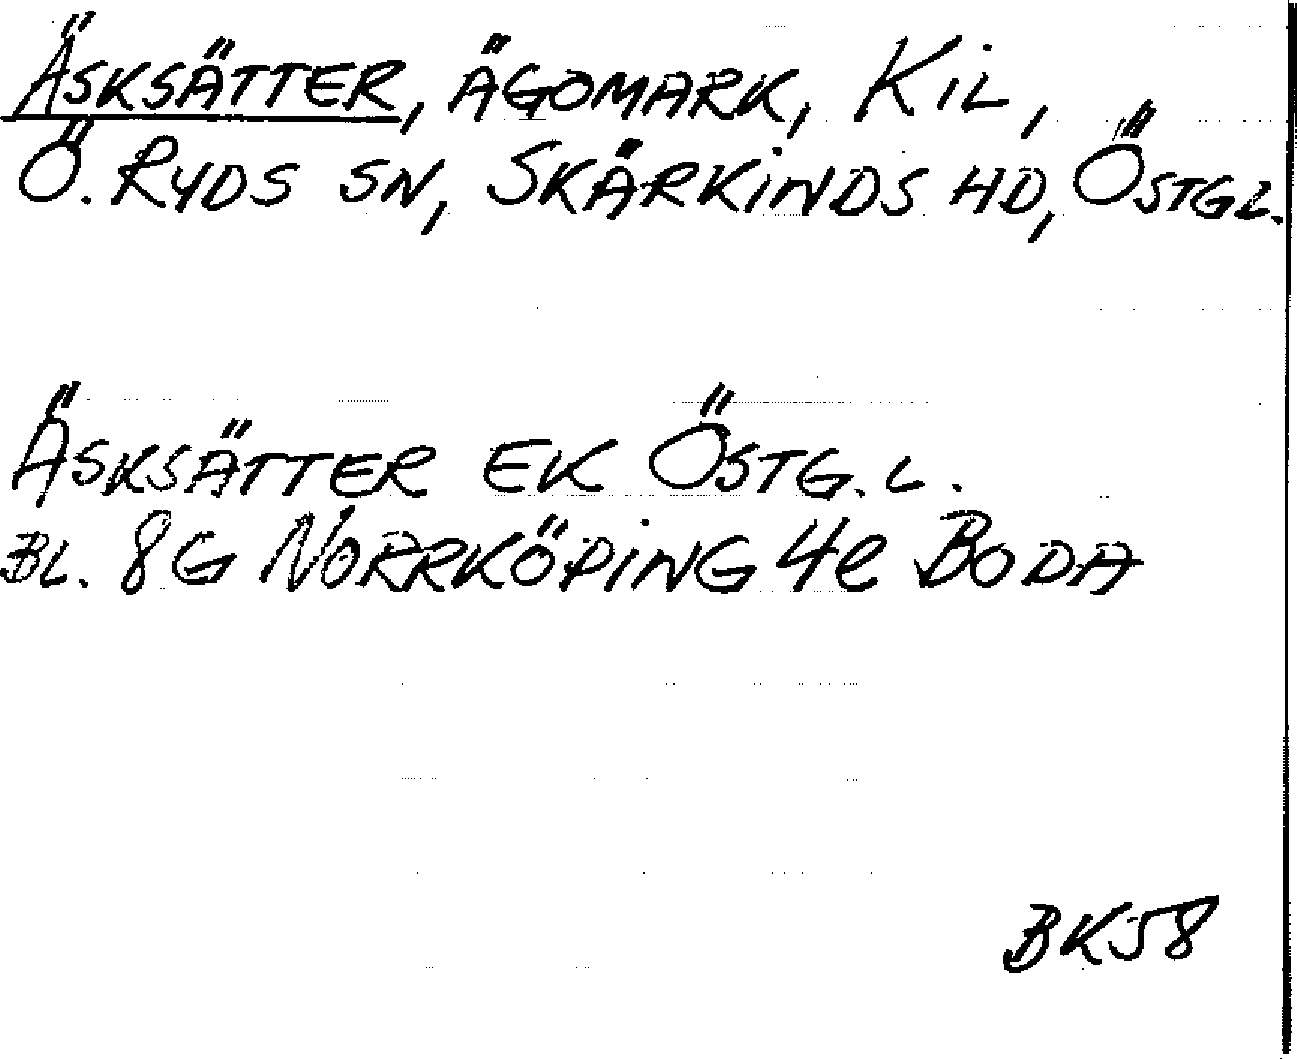 ÄSKSÄTTER, ÄGOMARK, KIL,
Ö. RYDS SN, SKÄRKINDS HD, ÖSTGL.
ÄSKSÄTTER EK ÖSTG. L.
BL. 8G NORRKÖPING 4e BODA
BK58